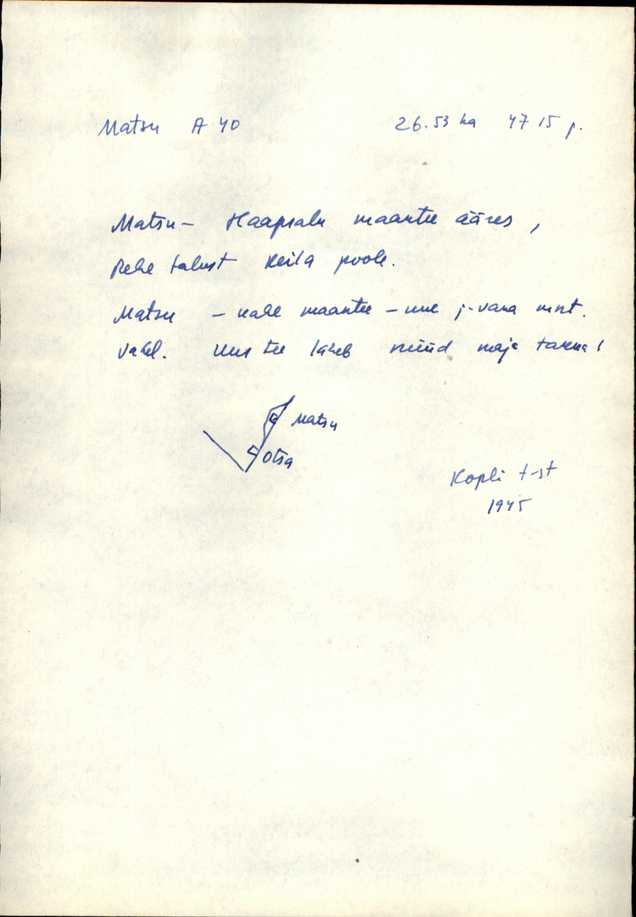 Matsu A 40 26.53 ha 47 15 p.
Matsu – Haapsalu maantee ääres,
Rehe talust Keila poole.
Matsu – kahe maantee – uue j. vana mnt.
vahel. Uus tee läheb nüüd maja tarma!
Matsu
Otsa
Kopli t-st
1945